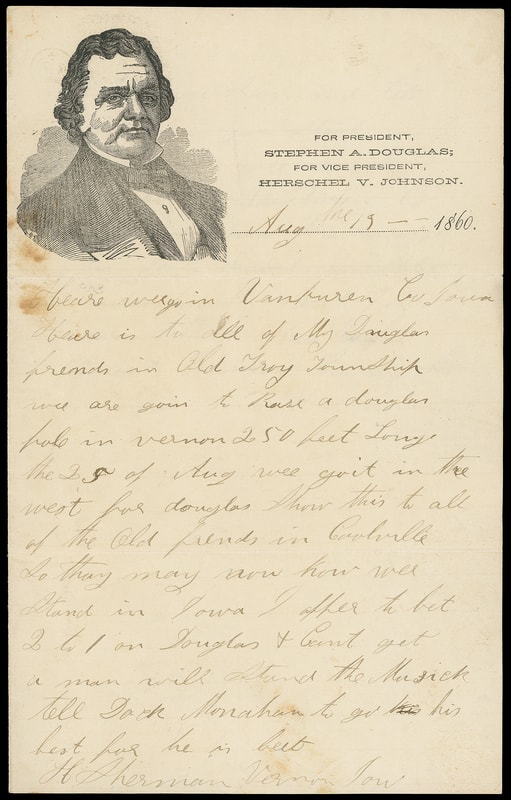 FOR PRESIDENT,
STEPHEN A. DOUGLAS;
FOR VICE PRESIDENT,
HERSCHEL V. JOHNSON.
Aug the 19 1860.
heare wee go in Vanburen Co Iowa
Heare is to all of My Douglas
frends in Old Troy Township
wee are goin to Rase a douglas
pole in vernon 250 feet Long
the 25 of Aug wee goit in the
west for douglas Show this to all
of the Old frends in Coolville
So thay may now how wee
Stand in Iowa I offer to bet
2 to 1 on Douglas & Cant get
a man will Stand the Musick
tell Dock Monahan to go his
best for he is beet
H Sherman Vernon Iow